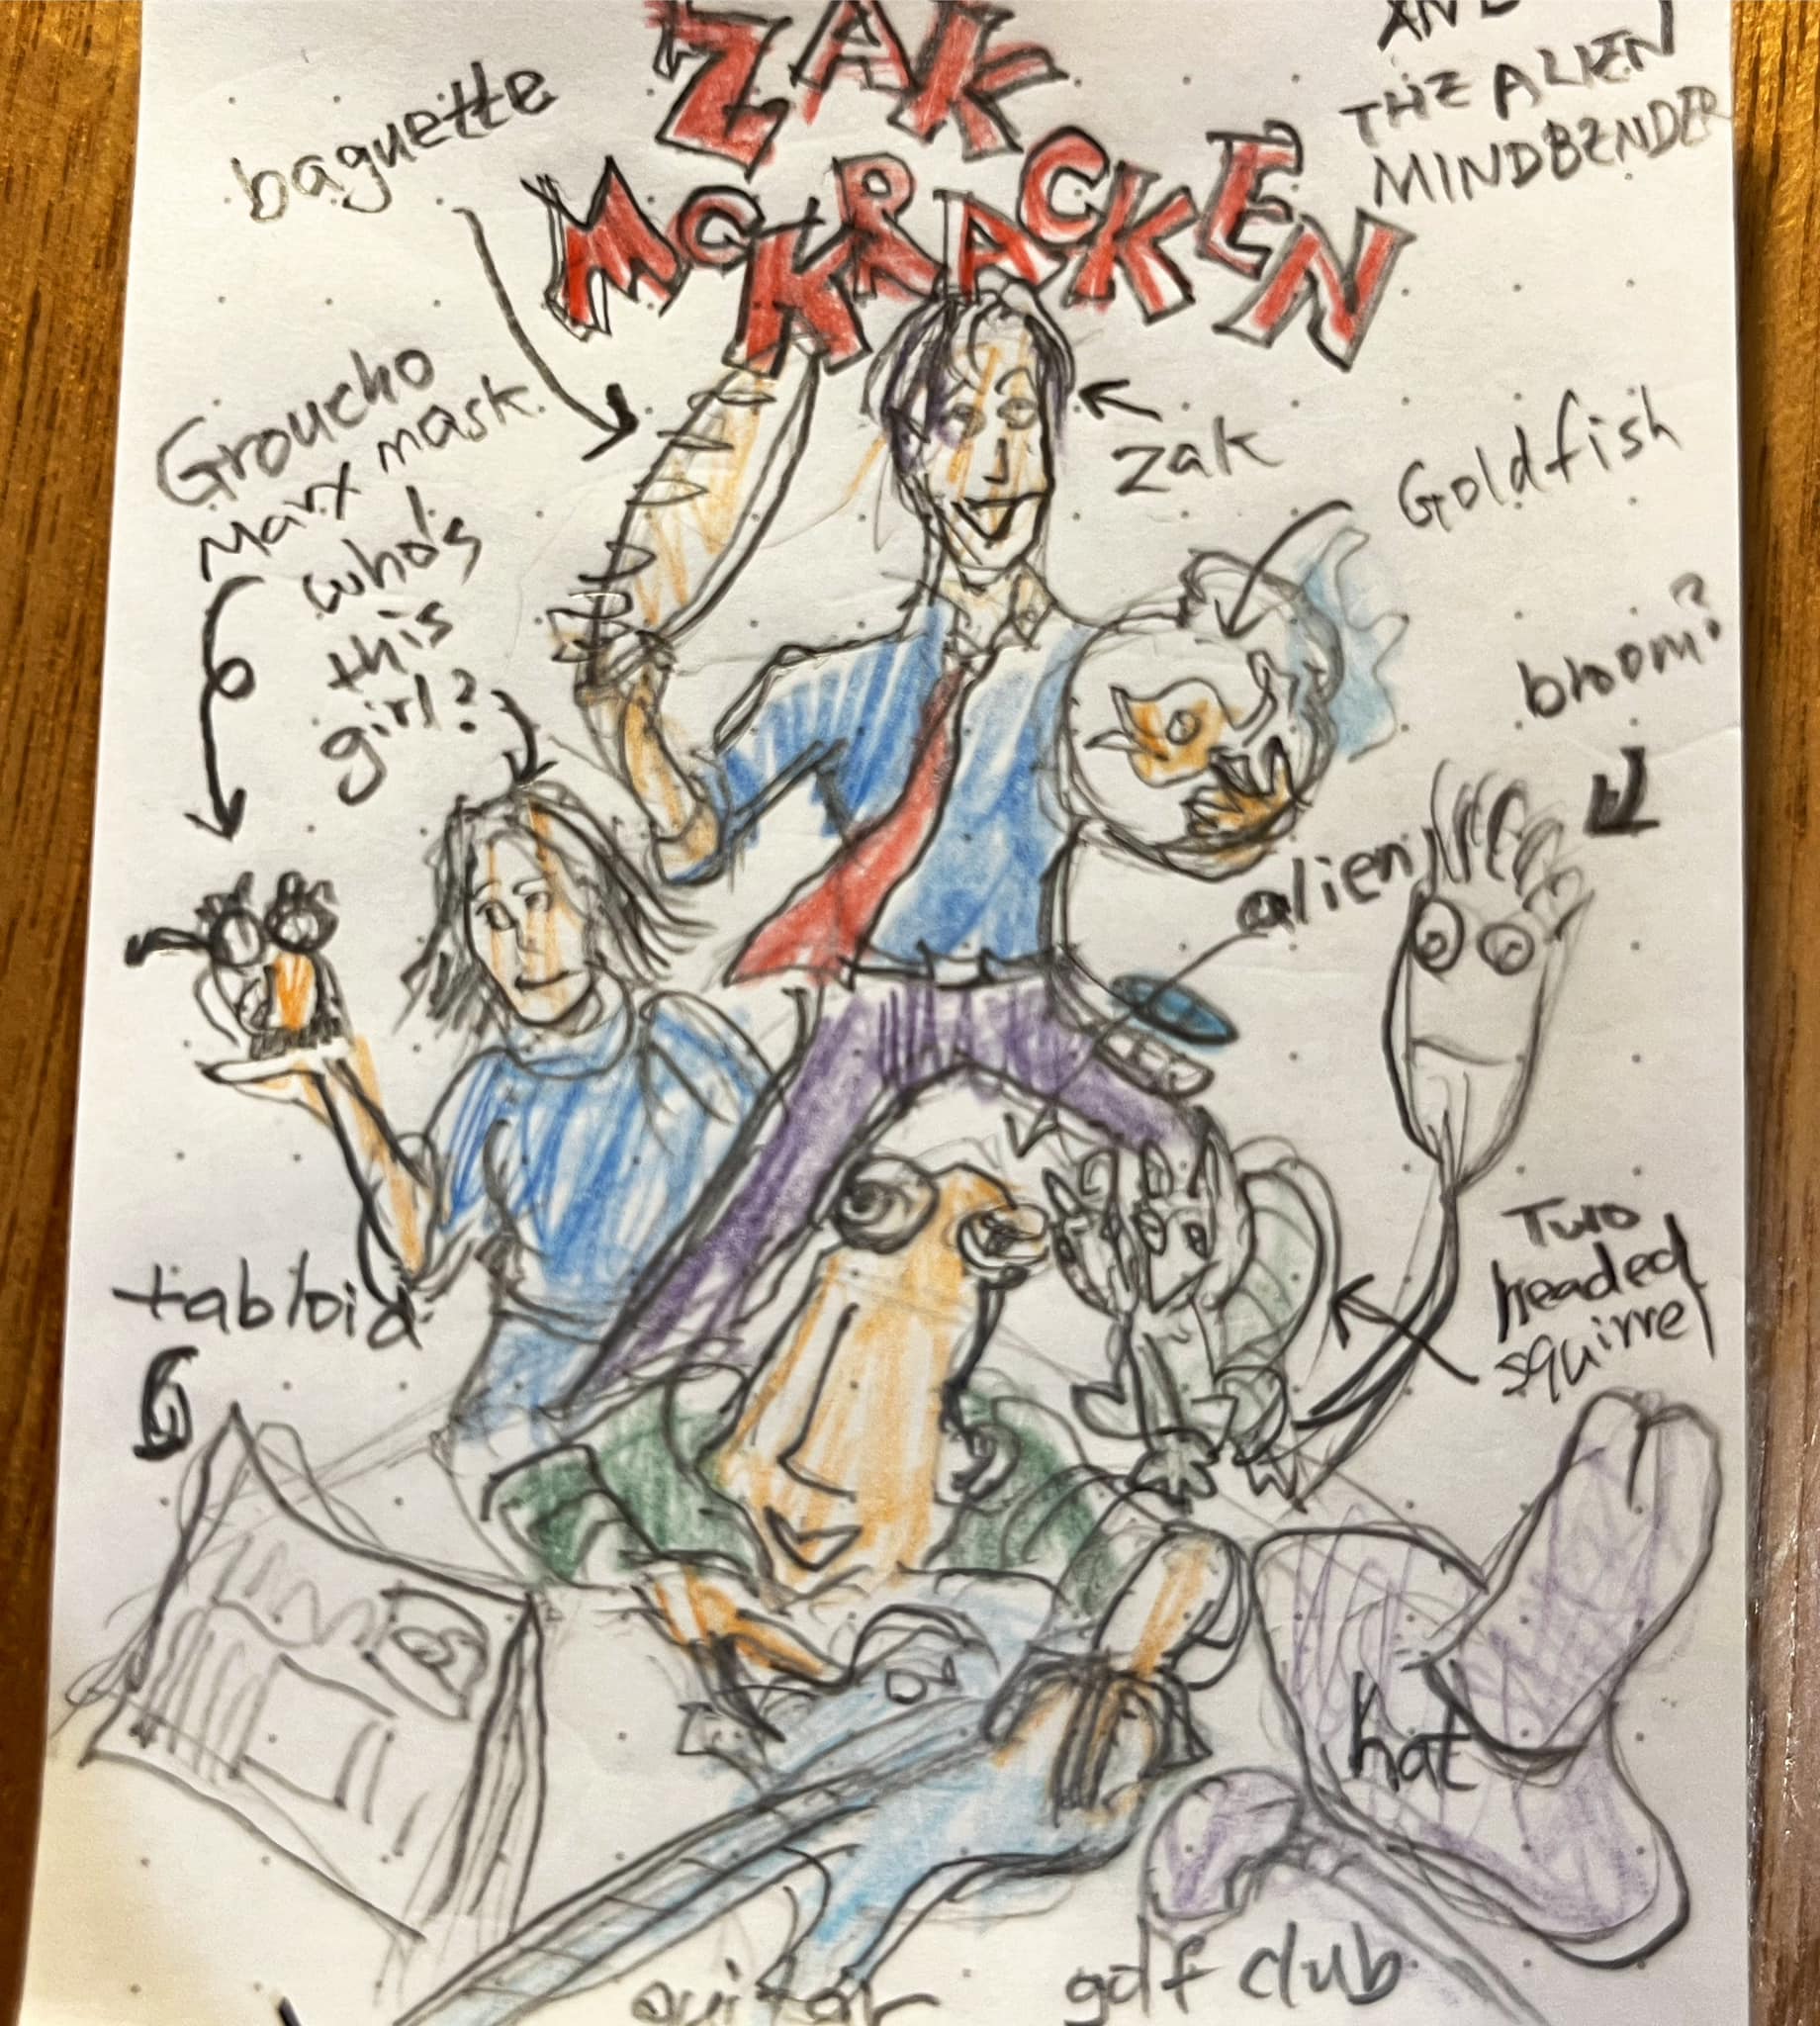 ZAK
MCKRACKEN
AND
THE ALIEN
MINDBENDER
baguette
Groucho
Marx mask
who's
this
girl?
Zak
Goldfish
broom?
alien
Two
headed
squirrel
tabloid
hat
guitar
golf club